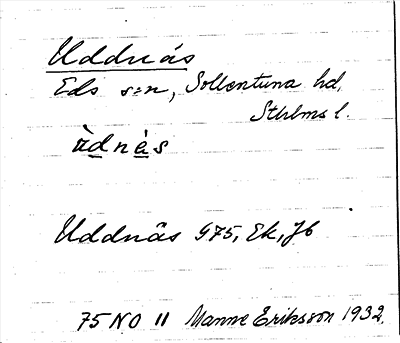 Uddnäs
Eds s:n, Sollentuna hd,
Sthlms l.
ùdnès
Uddnäs G75, Ek, Jb
75 NO 11 Manne Eriksson 1932.